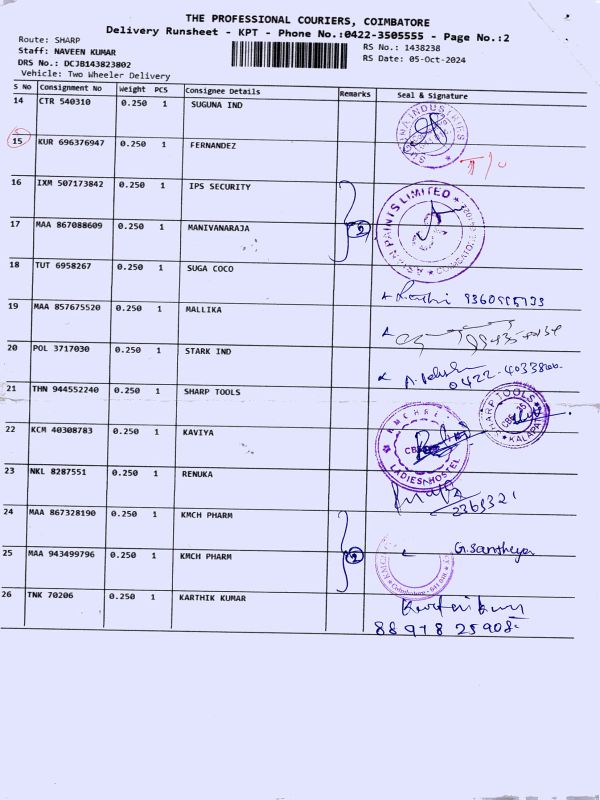 THE PROFESSIONAL COURIERS, COIMBATORE
Delivery Runsheet - KPT - Phone No.:0422-3505555 - Page No.:2
Route: SHARP
RS No.: 1438238
Staff: NAVEEN KUMAR
RS Date: 05-Oct-2024
DRS No.: DCJB143823802
Vehicle: Two Wheeler Delivery
S No Consignment No Weight PCS Consignee Details Remarks Seal & Signature
14 CTR 540310 0.250 1 SUGUNA IND
15 KUR 696376947 0.250 1 FERNANDEZ
16 IXM 507173842 0.250 1 IPS SECURITY ASIAN PAINTS LIMITED
17 MAA 867088609 0.250 1 MANIVANARAJA 2
18 TUT 6958267 0.250 1 SUGA COCO
19 MAA 857675520 0.250 1 MALLIKA
20 POL 3717030 0.250 1 STARK IND
21 THN 944552240 0.250 1 SHARP TOOLS SHARP TOOLS
22 KCM 40308783 0.250 1 KAVIYA LADIES HOSTEL
23 NKL 8287551 0.250 1 RENUKA
24 MAA 867328190 0.250 1 KMCH PHARM
25 MAA 943499796 0.250 1 KMCH PHARM 2 G.Santhiya
26 TNK 70206 0.250 1 KARTHIK KUMAR